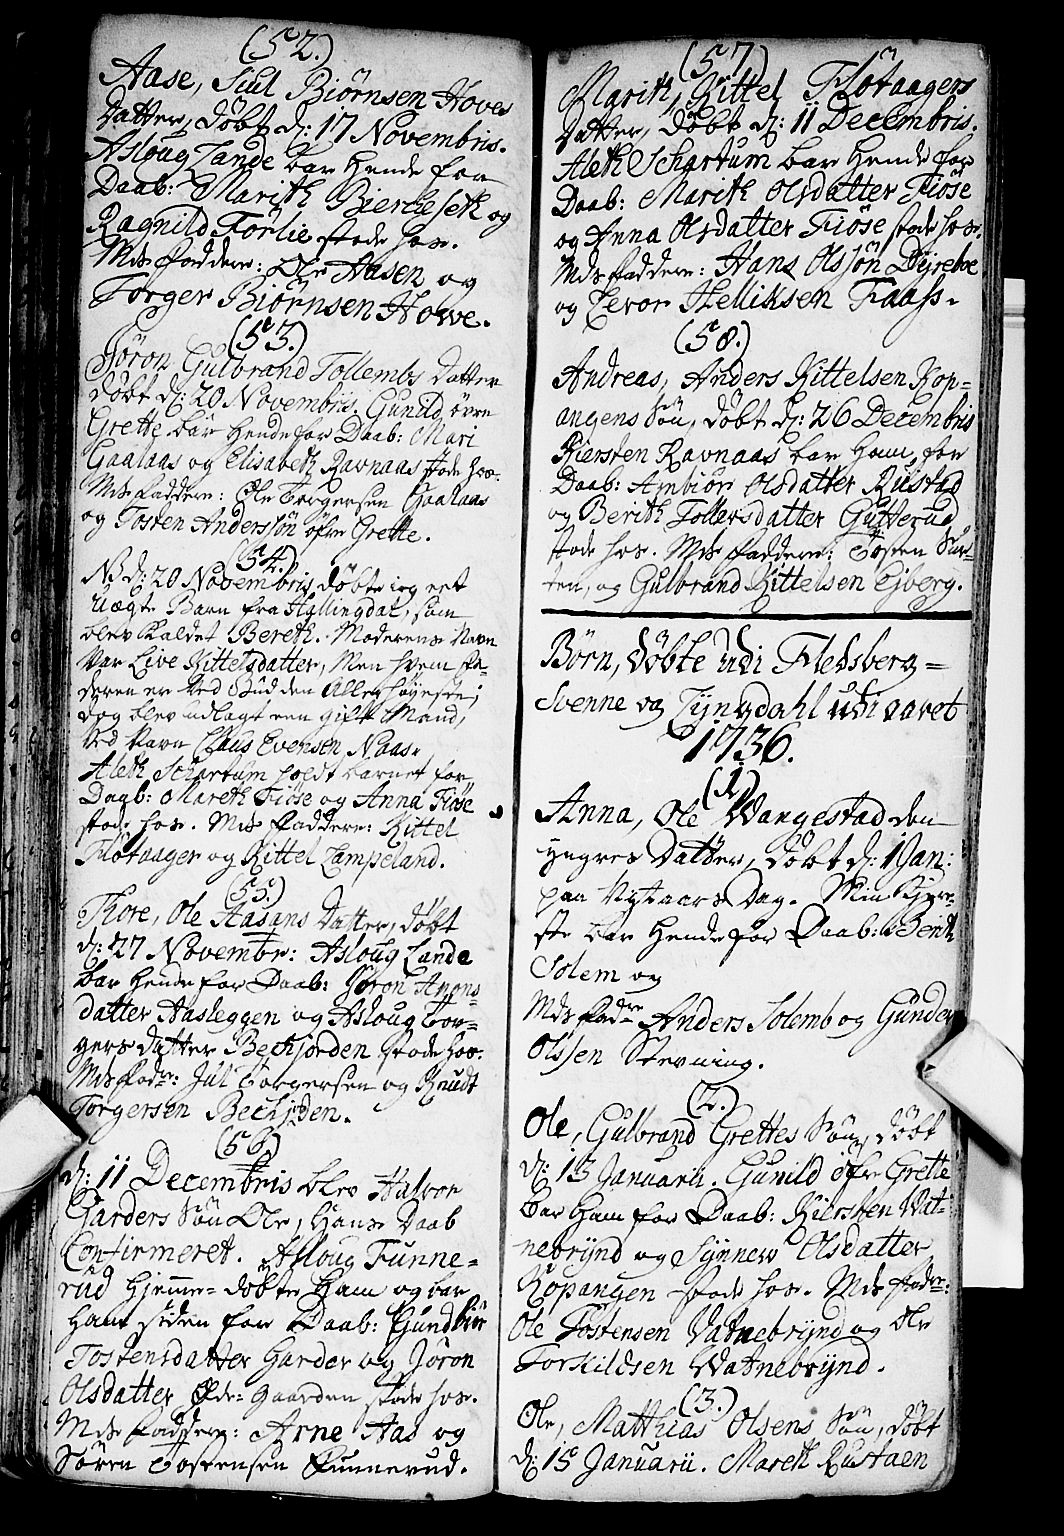 (52.)
Aase, Siul Biörnsen Hoves
Datter, döbt d: 17 Novembris.
Asloug Lande bar Hende for
Daab: Marith Biercheseth og
Ragnild Förlie stode hos.
Mds Faddere: Ole Aasen og
Torger Biörnsen Howe.
(53.)
Jöron Gulbrand Tollembs Datter
döbt d: 20 Novembris. Gunild övre
Grette bar Hende for Daab: Mari
Gaalaas og Elisabeth Ravnaas stode hos.
Mds Faddere: Ole Torgersen Gaalaas
og Tosten Anderssön öfre Grette.
(54.)
d: 20 Novembris döbte ieg eet
Uægte Barn fra Hallingdal, som
blev Kaldet Bereth. Moderens Navn
var Live Kittelsdatter, Men hvem Fa-
deren er ved Gud den Allerhöyeste;
dog blev udlagt een gift Mand,
ved Navn Claus Evensen Naas.
Aleth Schartum holdt barnet for
Daab: Mareth Fiöse og Anna Fiöse
stode hos. Mds Faddere: Kittel
Flötaager og Kittel Lampeland.
(55.)
Thore, Ole Aasans Datter, döbt
d: 27 Novembr: Asloug Lande
bar Hende for Daab: Jöron Amons-
datter Aasleggen og Asloug Tor-
gers datter Bechjorden stode hos.
Mds Fadre: Jul Torgersen og Knudt
Torgersen Bechjorden.
(56.)
d: 11 Decembris blev Halvor
Garders Sön Ole, Hans Daab
Confirmeret. Asloug Funne-
rud hjemme-döbte Ham og bar
Ham siden for Daab: Gundbiör
Tostensdatter Garder og Jöron
Olsdatter Öde-gaarden stode hos.
Mds Faddere: Arne Aas og
Sören Tostensen Funnerud.
(57.)
Marith, Kittel Flötaagers
Datter, döbt d: 11 Decembris.
Aleth Schartum bar Hende for
Daab: Marith Olsdatter Fiöse
og Anna Olsdatter Fiöse stode hos.
Mds Faddere: Hans Olssön Dyreboe
og Tevor Helliksen Faass.
(58.)
Andreas, Anders Kittelsen Kop-
angens Sön, döbt d: 26 Decembris
Kiersten Ravnaas bar Ham for
Daab: Ambiör Olsdatter Rustad
og Berith Tollersdatter Gutterud
stode hos. Mds Faddere: Tosten
og Gulbrand Kittelsen Ejberg.
Börn, döbte udi Fledsberg-
Svenne og Lyngdahl udi aaret
1736.
(1.)
Anna, Ole Wangestad den
yngres Datter, döbt d: 1 Jan:
paa Nytaars Dag. Min Kjere-
ste bar Hende for Daab: Bent
Solem og
Mds Fadre Anders Solemb og Gunder
Olssen Stevning.
(2.)
Ole, Gulbrand Grettes Sön, döbt
d: 15 Januarii. Gunild öfre Grette
bar Ham for Daab: Kiersten Vat-
nebrynd og Synnew Olsdatter
Kopangen stode hos. Mds Fadre:
Ole Tostensen Vatnebrynd og Ole
Torkildsen Watnebrynd.
(3.)
Ole, Matthias Olsens Sön, döbt
d: 15 Januarii. Mareth Rustaen